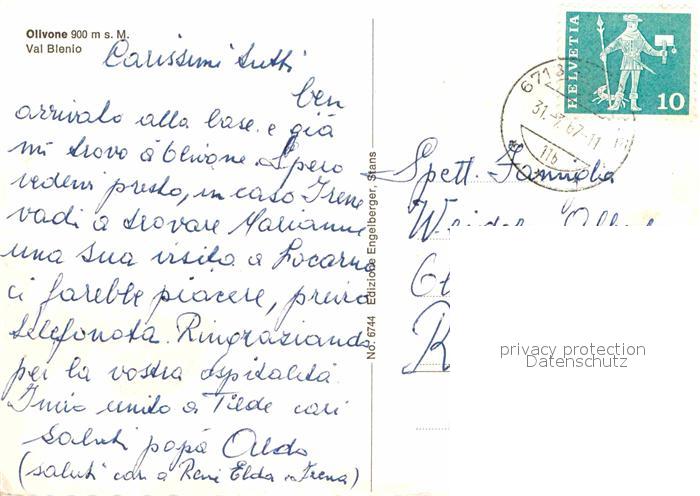 Olivone 900 m s. M.
Val Blenio
Carissimi tutti
ben
arrivato alla base e già
mi trovo a Olivone. Spero
vedervi presto, in caso Irene
vadi a trovare Marianne
una sua visita a Locarno
ci farebbe piacere, previa
telefonata. Ringraziando
per la vostra ospitalità.
Invio unito a Tilde cari
saluti papà Aldo
(saluti cari a René Elda e Irena)
No. 6744 Edizione Engelberger, Stans
HELVETIA
10
671
31.-7.67-11
11b
Spett. Famiglia
privacy protection
Datenschutz